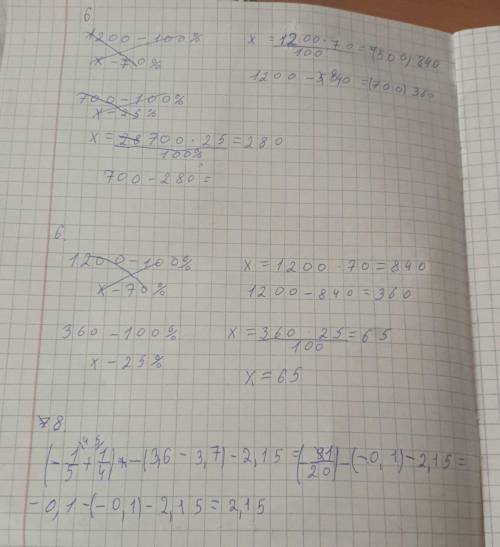 6.
1200 - 100%
x - 70%
x = 1200 · 70 / 100 = (500) 840
1200 - 840 = (700) 360
700 - 100%
x - 25%
x = 28700 · 25 / 100% = 280
700 - 280 =
6.
1200 - 100%
x - 70%
x = 1200 · 70 = 840
1200 - 840 = 360
360 - 100%
x - 25%
x = 360 · 25 / 100 = 65
x = 65
8
(-1/5 + 1/4) - (3,6 - 3,7) - 2,15 = (-81/20) - (-0,1) - 2,15 =
-0,1 - (-0,1) - 2,15 = 2,15